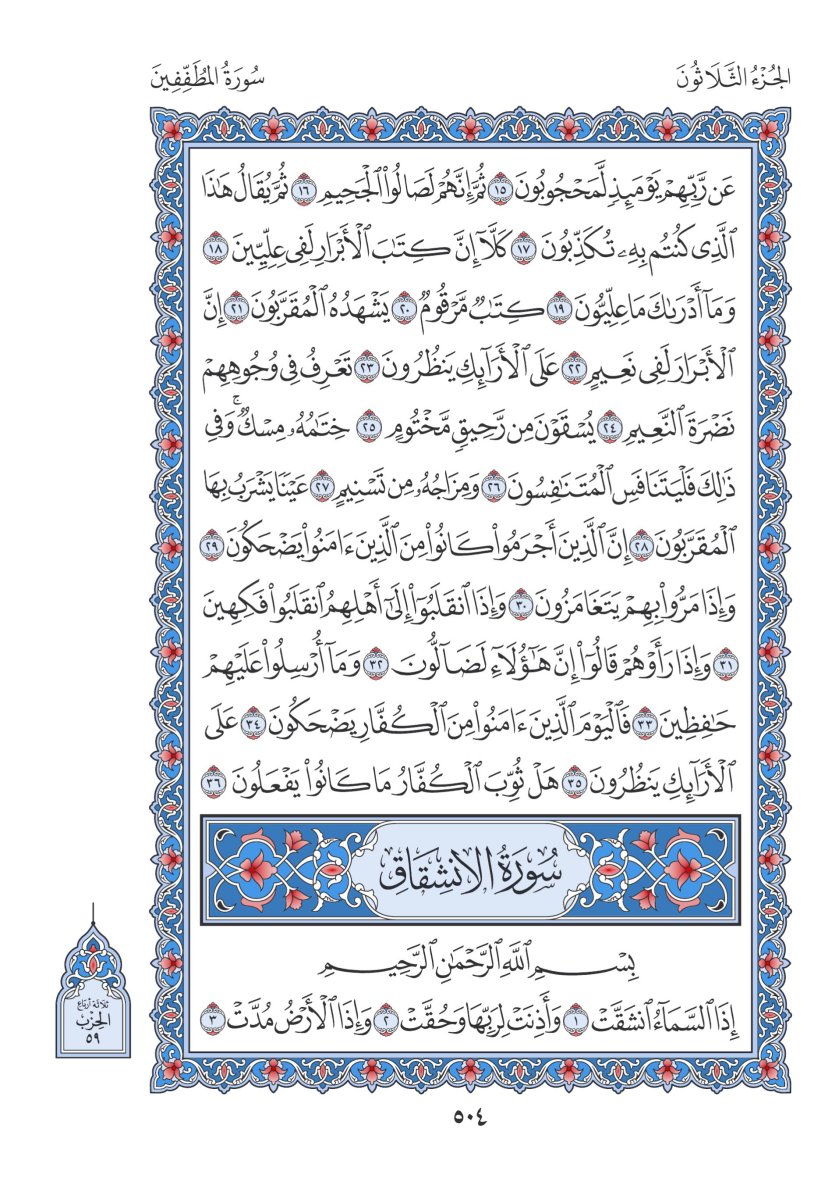 الجُزْءُ الثَّلَاثُونَ
سُورَةُ المُطَفِّفِينَ
عَن رَّبِّهِمْ يَوْمَئِذٍ لَّمَحْجُوبُونَ ١٥ ثُمَّ إِنَّهُمْ لَصَالُوا۟ ٱلْجَحِيمِ ١٦ ثُمَّ يُقَالُ هَٰذَا
ٱلَّذِى كُنتُم بِهِۦ تُكَذِّبُونَ ١٧ كَلَّآ إِنَّ كِتَٰبَ ٱلْأَبْرَارِ لَفِى عِلِّيِّينَ ١٨
وَمَآ أَدْرَىٰكَ مَا عِلِّيُّونَ ١٩ كِتَٰبٌ مَّرْقُومٌ ٢٠ يَشْهَدُهُ ٱلْمُقَرَّبُونَ ٢١ إِنَّ
ٱلْأَبْرَارَ لَفِى نَعِيمٍ ٢٢ عَلَى ٱلْأَرَآئِكِ يَنظُرُونَ ٢٣ تَعْرِفُ فِى وُجُوهِهِمْ
نَضْرَةَ ٱلنَّعِيمِ ٢٤ يُسْقَوْنَ مِن رَّحِيقٍ مَّخْتُومٍ ٢٥ خِتَٰمُهُۥ مِسْكٌ ۚ وَفِى
ذَٰلِكَ فَلْيَتَنَافَسِ ٱلْمُتَنَٰفِسُونَ ٢٦ وَمِزَاجُهُۥ مِن تَسْنِيمٍ ٢٧ عَيْنًا يَشْرَبُ بِهَا
ٱلْمُقَرَّبُونَ ٢٨ إِنَّ ٱلَّذِينَ أَجْرَمُوا۟ كَانُوا۟ مِنَ ٱلَّذِينَ ءَامَنُوا۟ يَضْحَكُونَ ٢٩
وَإِذَا مَرُّوا۟ بِهِمْ يَتَغَامَزُونَ ٣٠ وَإِذَا ٱنقَلَبُوٓا۟ إِلَىٰٓ أَهْلِهِمُ ٱنقَلَبُوا۟ فَكِهِينَ
٣١ وَإِذَا رَأَوْهُمْ قَالُوٓا۟ إِنَّ هَٰٓؤُلَآءِ لَضَآلُّونَ ٣٢ وَمَآ أُرْسِلُوا۟ عَلَيْهِمْ
حَٰفِظِينَ ٣٣ فَٱلْيَوْمَ ٱلَّذِينَ ءَامَنُوا۟ مِنَ ٱلْكُفَّارِ يَضْحَكُونَ ٣٤ عَلَى
ٱلْأَرَآئِكِ يَنظُرُونَ ٣٥ هَلْ ثُوِّبَ ٱلْكُفَّارُ مَا كَانُوا۟ يَفْعَلُونَ ٣٦
سُورَةُ الانشِقَاق
بِسْمِ ٱللَّهِ ٱلرَّحْمَٰنِ ٱلرَّحِيمِ
إِذَا ٱلسَّمَآءُ ٱنشَقَّتْ ١ وَأَذِنَتْ لِرَبِّهَا وَحُقَّتْ ٢ وَإِذَا ٱلْأَرْضُ مُدَّتْ ٣
ثلاثة أرباع
الحِزْب
٥٩
٥٠٤